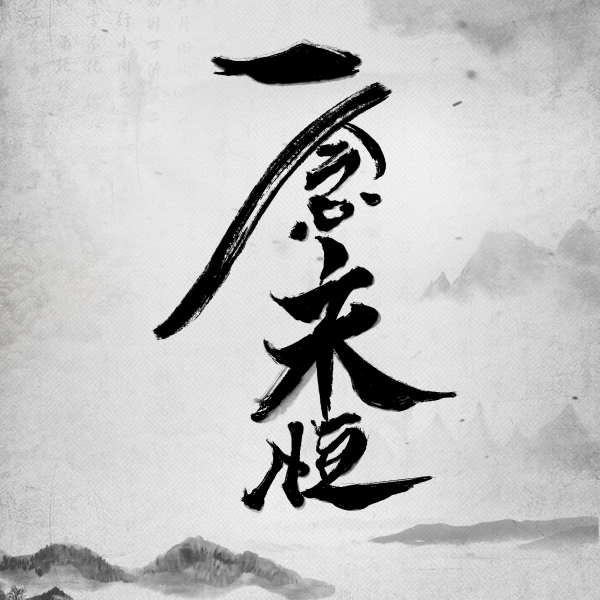 一念永恒